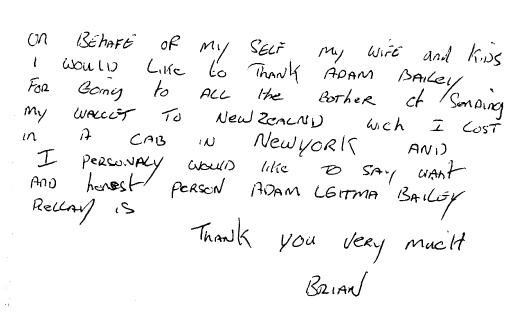 On BEHAFE OF My SELF my wife and KIDS
I WOULD LIKE to THANK ADAM BAILEY
FOR GOING to ALL the BOTHER of SENDING
MY WALLET TO NEW ZEALND WICH I LOST
in A CAB IN NEWYORK AND
I PERSONALY WOULD like TO SAY WHAT
AND honest PERSON ADAM LEITMA BAILEY
RELLAY IS
THANK YOU VERY MUCH
BRIAN